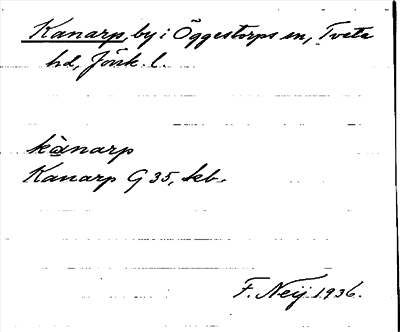 Kanarp, by i Öggestorps sn, Tveta
hd, Jönk. l.
kànarp
Kanarp G 35, kb.
F. Neij 1936.